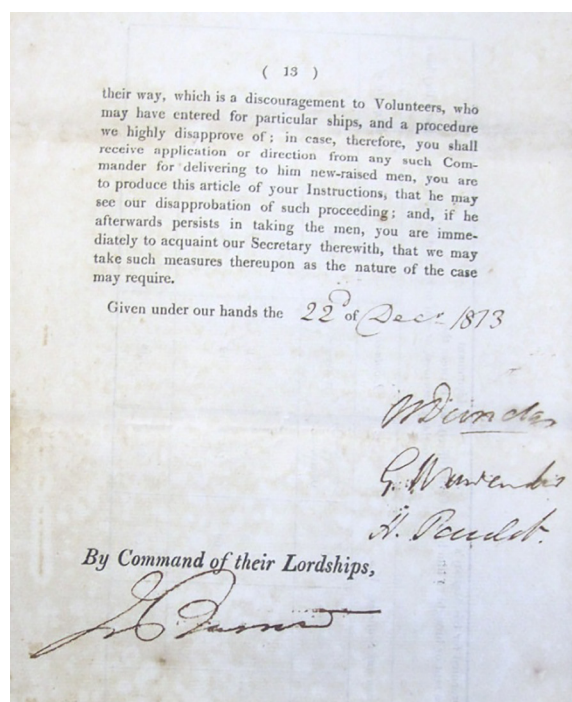 ( 13 )
their way, which is a discouragement to Volunteers, who
may have entered for particular ships, and a procedure
we highly disapprove of; in case, therefore, you shall
receive application or direction from any such Com-
mander for delivering to him new-raised men, you are
to produce this article of your Instructions, that he may
see our disapprobation of such proceeding; and, if he
afterwards persists in taking the men, you are imme-
diately to acquaint our Secretary therewith, that we may
take such measures thereupon as the nature of the case
may require.
Given under our hands the 22d of Decr 1813
W Dundas
G. Warrender
H. Paulet.
By Command of their Lordships,